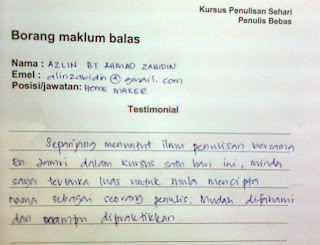 Kursus Penulisan Sehari
Penulis Bebas
Borang maklum balas
Nama : AZLIN BT AHMAD ZABIDIN
Emel : alinzabidin@gmail.com
Posisi/jawatan: HOME MAKER
Testimonial
Sepanjang menuntut ilmu penulisan bersama
En Jamri dalam kursus satu hari ini, minda
saya terbuka luas untuk mula mencipta
nama sebagai seorang penulis. Mudah difahami
dan mampu dipraktikkan.